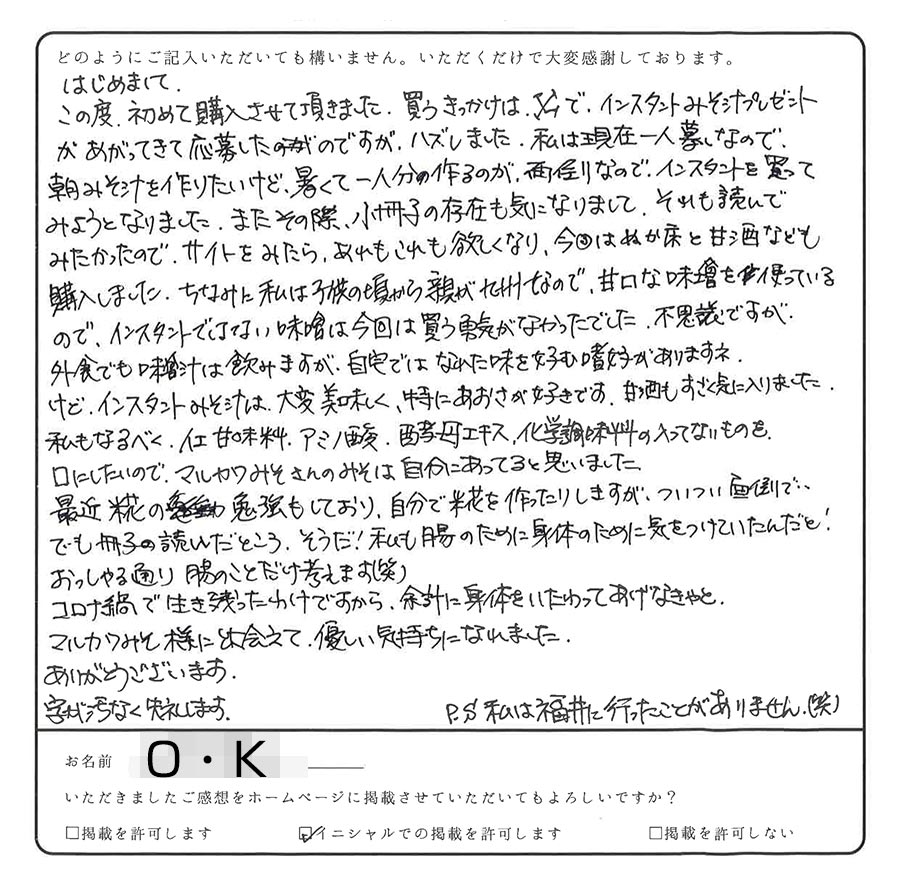 どのようにご記入いただいても構いません。いただくだけで大変感謝しております。
はじめまして.
この度.初めて購入させて頂きました.買うきっかけは.Xで.インスタントみそ汁プレゼント
があがってきて応募したのですが.ハズしました.私は現在一人暮しなので.
朝みそ汁を作りたいけど.暑くて一人分の作るのが.面倒りなので.インスタントを買って
みようとなりました.またその際、小冊子の存在も気になりまして.それも読んで
みたかったので.サイトをみたら.あれもこれも欲しくなり、今回はぬか床と甘酒なども
購入しました.ちなみに私は子供の頃から親が九州なので.甘口な味噌を使っている
ので、インスタントではない味噌は今回は買う勇気がなかったでした.不思議ですが.
外食でも味噌汁は飲みますが、自宅ではなれた味を好む嗜好がありますネ.
けど.インスタントみそ汁は、大変美味しく、特にあおさが好きです.甘酒もすごく気に入りました.
私もなるべく.人工甘味料.アミノ酸.酵母エキス,化学調味料の入ってないものを.
口にしたいので.マルカワみそさんのみそは自分にあってると思いました.
最近糀の勉強もしており、自分で米花を作ったりしますが、ついつい面倒で..
でも冊子の読んだところ.そうだ!私も腸のために身体のために気をつけていたんだと!
おっしゃる通り腸のことだけ考えます(笑)
コロナ禍で生き残ったわけですから、余計に身体をいたわってあげなきゃと.
マルカワみそ様に出会えて.優しい気持ちになれました.
ありがとうございます.
字が汚なく失礼します.
P.S 私は福井に行ったことがありません.(笑)
お名前 O・K
いただきましたご感想をホームページに掲載させていただいてもよろしいですか？
□掲載を許可します ☑イニシャルでの掲載を許可します □掲載を許可しない